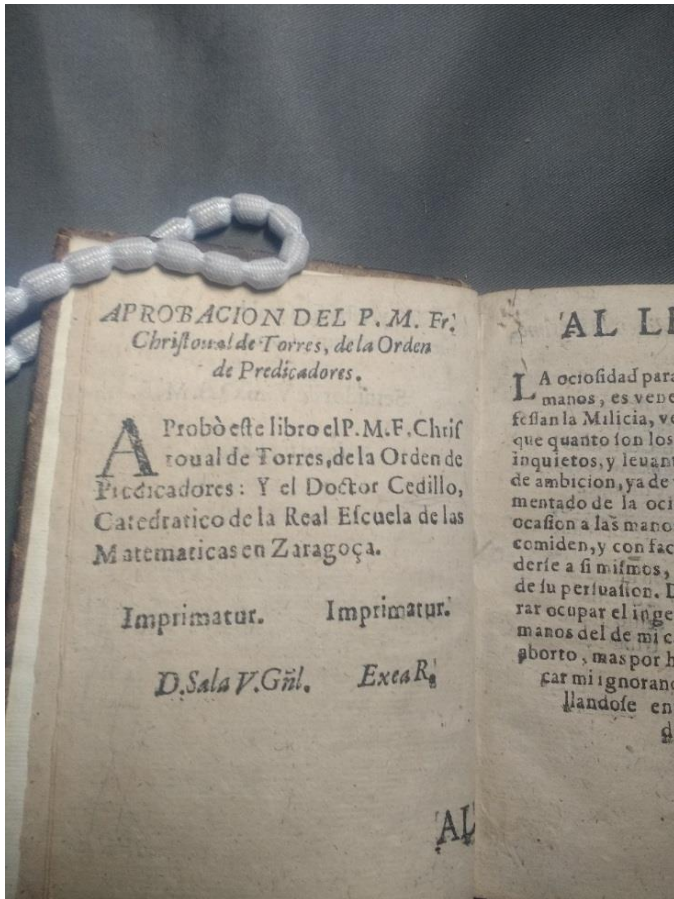 APROBACION DEL P. M. Fr.
Chriſtoual de Torres, de la Orden
de Predicadores.
APROBò eſte libro el P. M. F. Chriſ
toual de Torres, de la Orden de
Predicadores: Y el Doctor Cedillo,
Catedratico de la Real Eſcuela de las
Matematicas en Zaragoça.
Imprimatur. Imprimatur.
D. Sala V. Gñl. Exea R.
AL
AL
LA ocioſidad para
manos, es
feſſan la Milicia,
que quanto ſon los
inquietos, y
de ambicion, ya de
mentado de la
ocaſion a las
comiden, y con
derſe a ſi miſmos,
de ſu perſuaſion.
rar ocupar el
manos del de mi
aborto, mas por
car mi
llandoſe en